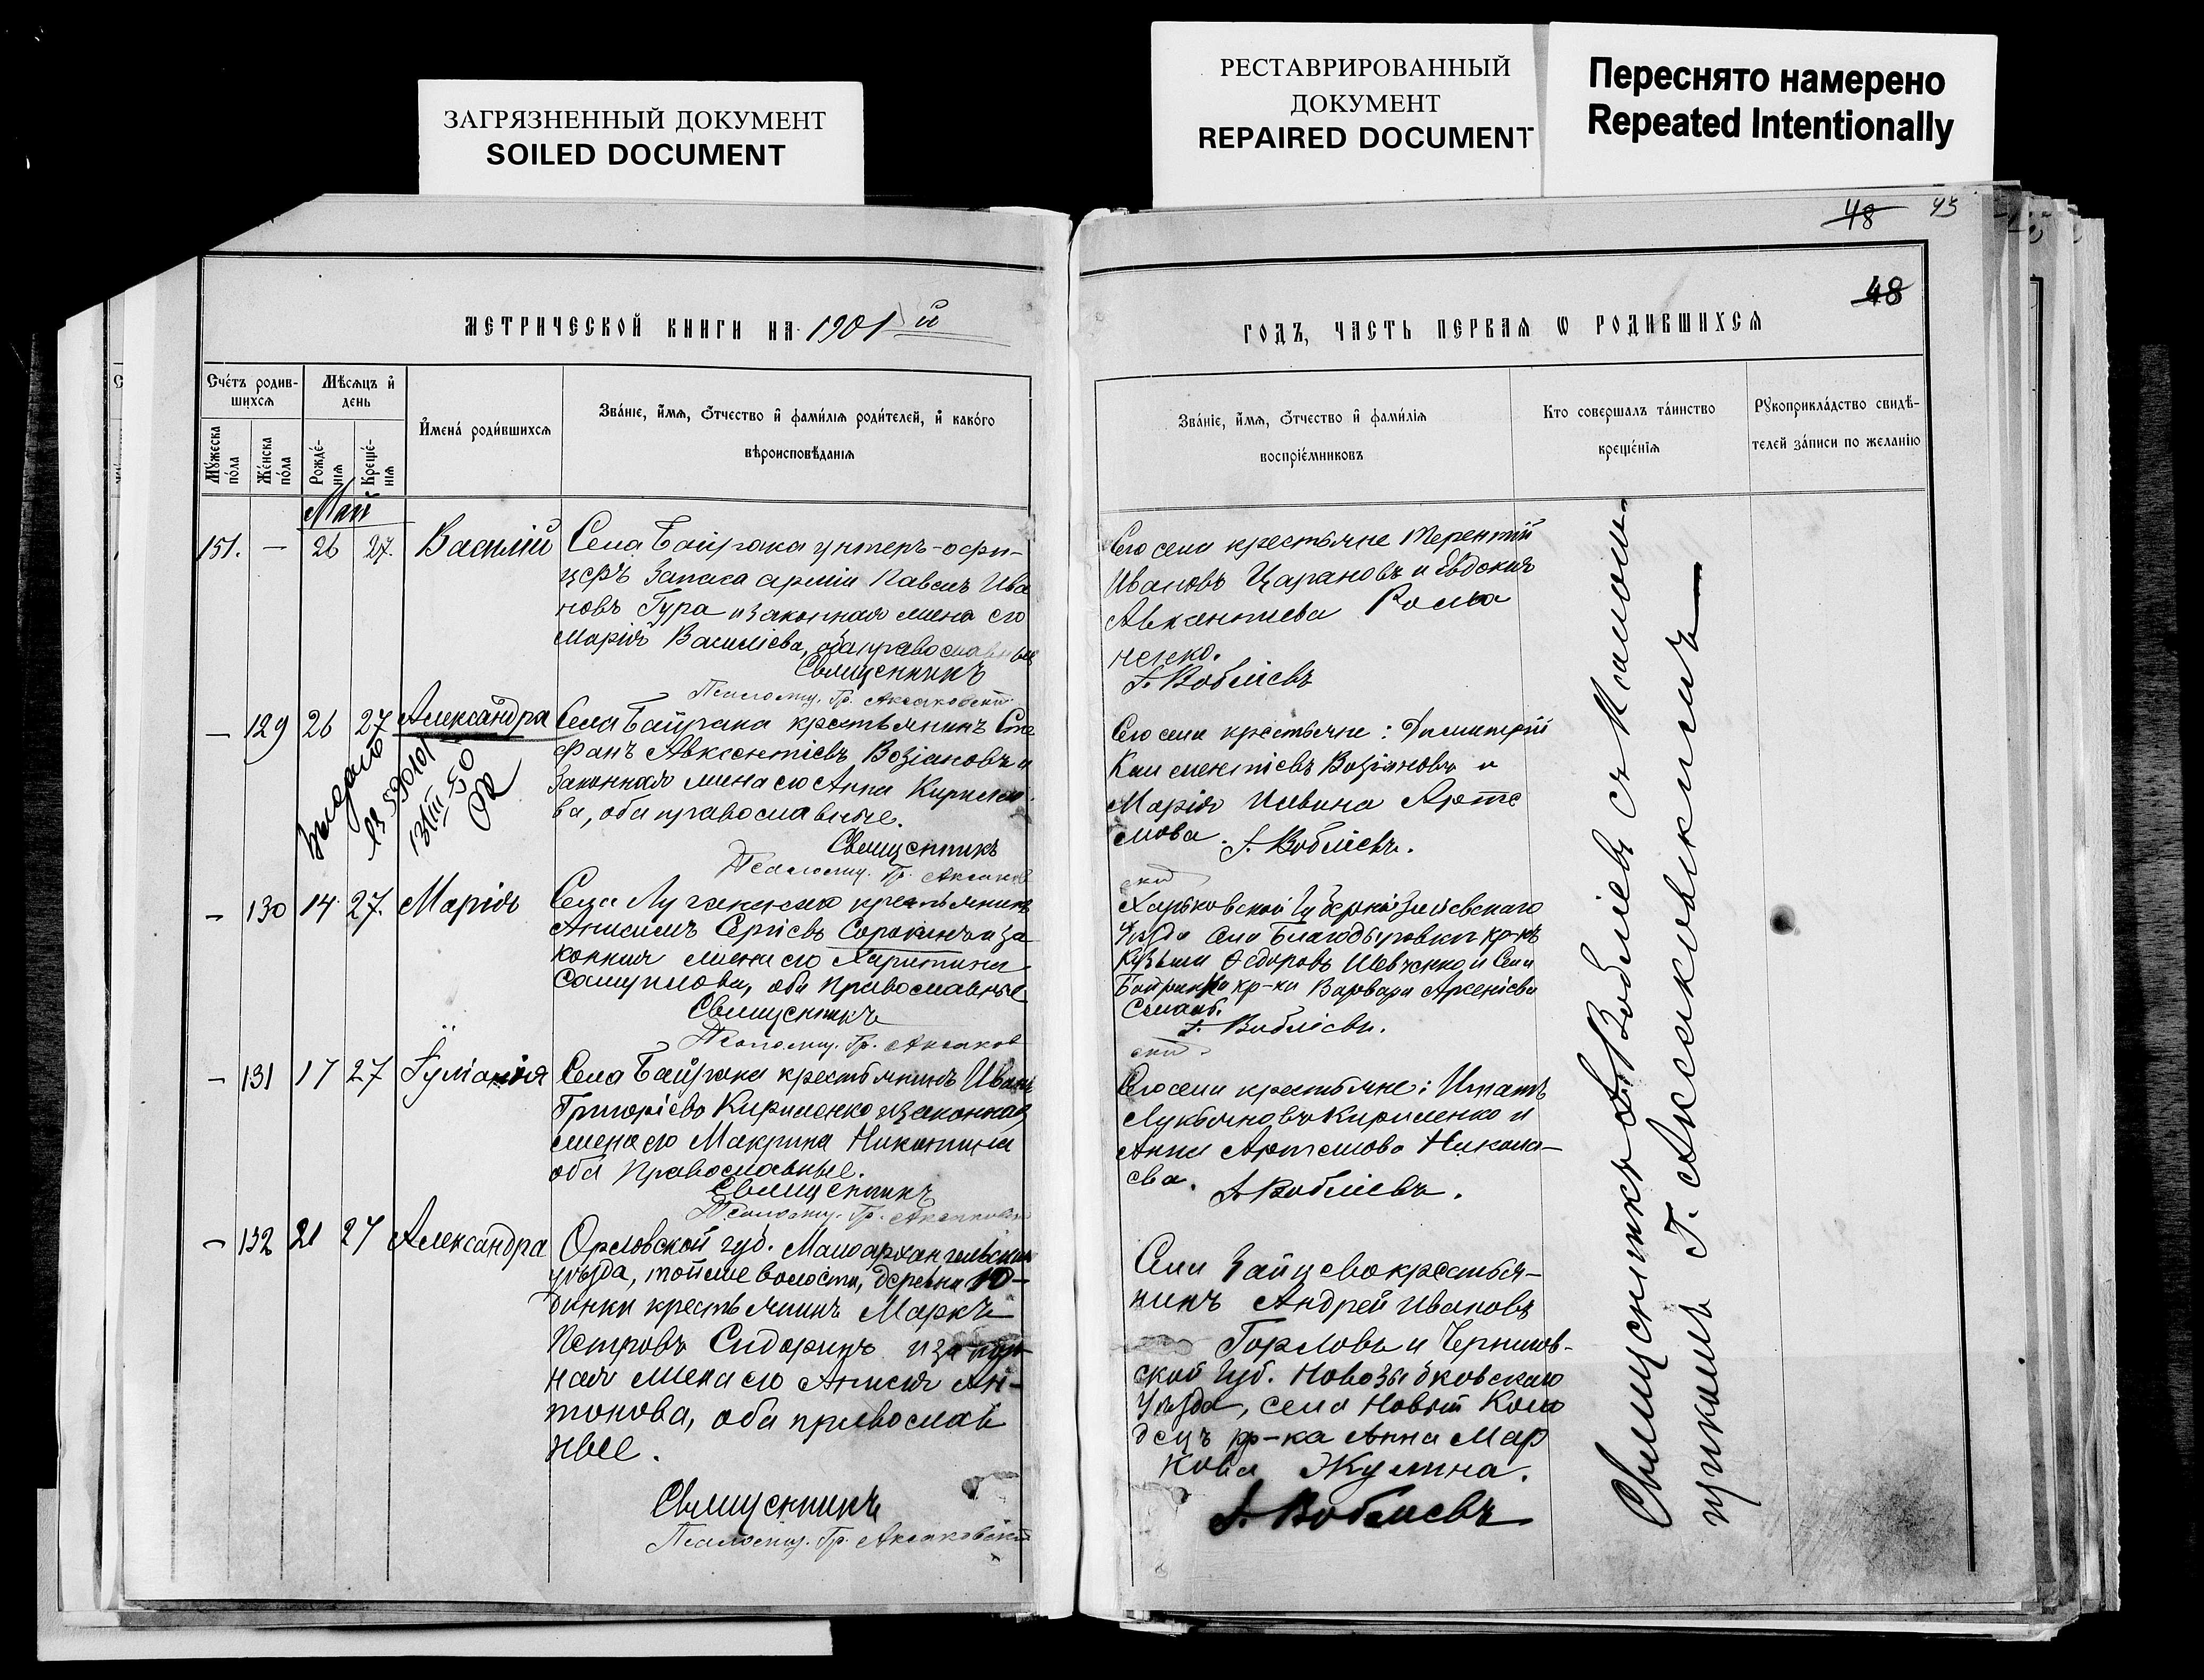 ЗАГРЯЗНЕННЫЙ ДОКУМЕНТ
SOILED DOCUMENT
РЕСТАВРИРОВАННЫЙ
ДОКУМЕНТ
REPAIRED DOCUMENT
Переснято намерено
Repeated Intentionally
48 43
48
МЕТРИЧЕСКОЙ КНИГИ НА 1901 й
ГОДЪ, ЧАСТЬ ПЕРВАЯ Ѡ РОДИВШИХСЯ
Счётъ родив-
шихся
Мѣсяцъ и
день
Мужеска
пола
Женска
пола
Рожде-
нія
Креще-
нія
Имена родившихся
Званіе, имя, отчество и фамилія родителей, и какого
вѣроисповѣданія
Званіе, имя, отчество и фамилія
воспріемниковъ
Кто совершалъ таинство
крещенія
Рукоприкладство свидѣ-
телей записи по желанію
Май
151. — 26 27. Василій
Села Байрака унтеръ-офи-
церъ запаса арміи Павелъ Ива
новъ Гура и законная жена его
Марія Василіева, оба православные
Священникъ
Псаломщ. Гр. Аксаковскій
Его села крестьяне Терентій
Ивановъ Царановъ и Евдокія
Авксентиева Рома
ненко.
І. Воблиевъ
— 129 26 27 Александра
Села Байрака крестьянинъ Сте
фанъ Авксентіевъ Возіяновъ и
законная жена его Анна Кирилло
ва, оба православные.
Священникъ
Псаломщ. Гр. Аксаков
Выдано
13/III 50
Его села крестьяне: Димитрій
Климентіевъ Возіяновъ и
Марія Иивина Арте
мова. І. Воблиевъ.
скій
— 130 14 27. Марія
Села Луганскаго крестьянинъ
Анисимъ Сергіевъ Сорокинъ и за
конная жена его Харитина
Самуилова, оба православные
Священникъ
Псаломщ. Гр. Аксаков
Харьковской Губерніи Зміевскаго
уѣзда села кр-нъ
Кузьма Ѳедоровъ Шевченко и Села
Байрака кр-ка Варвара Арсеніева
І. Воблиевъ.
скій
— 131 17 27 Іуліанія
Села Байрака крестьянинъ Иванъ
Григоріевъ Кириленко и законная
жена его Макрина Никитина
оба Православные.
Священникъ
Псаломщ. Гр. Аксаковскій
Его села крестьяне: Игнатъ
Лукьяновъ Кириленко и
Анна Артемова Никола-
ева. І. Воблиевъ.
— 132 21 27 Александра
Орловской губ. Малоархангельскаго
уѣзда, той же волости, деревни Ю-
динки крестьянинъ Маркъ
Петровъ Сидоринъ и закон-
ная жена его Анисія Ан-
тонова, оба православ
ные.
Священникъ
Псаломщ. Гр. Аксаковскій
Села Зайцева крестья-
нинъ Андрей Ивановъ
Горловъ и Чернигов-
ской Губ. Новозыбковскаго
Уѣзда, села Новый Коло
децъ кр-ка Анна Мар
кова Жулина.
І. Воблиевъ
Священникъ І. Воблиевъ съ Псалом-
щикомъ Г. Аксаковскимъ